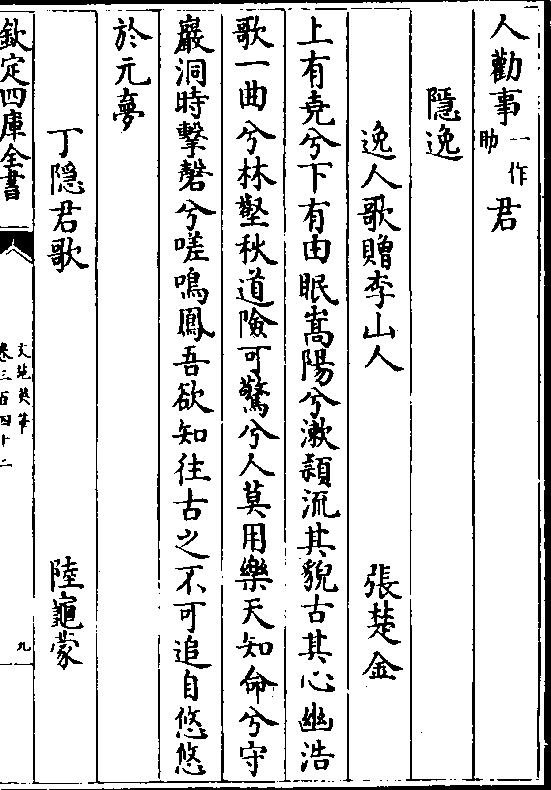 人勸事一作助君
隱逸
逸人歌贈李山人　張楚金
上有堯兮下有由眠嵩陽兮漱潁流其貌古其心幽浩
歌一曲兮林壑秋道險可驚兮人莫用樂天知命兮守
巖洞時擊磬兮嗟鳴鳳吾欲知往古之不可追自悠悠
於元夢
丁隠君歌　陸龜蒙
欽定四庫全書
文苑英華
卷三百四十二
九